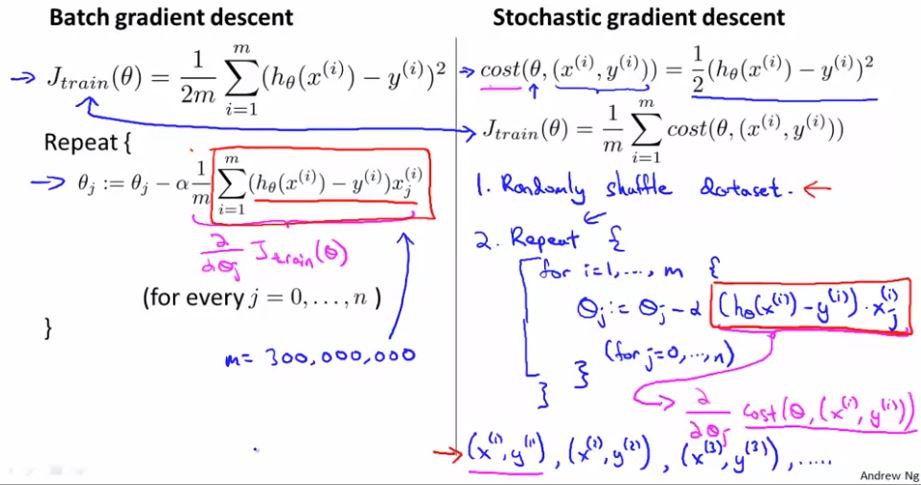 Batch gradient descent
→ J_train(θ) = 1/2m ∑_{i=1}^{m} (h_θ(x^(i)) − y^(i))²
Repeat {
→ θ_j := θ_j − α 1/m ∑_{i=1}^{m} (h_θ(x^(i)) − y^(i)) x_j^(i)
∂/∂θ_j J_train(θ)
(for every j = 0, . . . , n )
}
m = 300,000,000
Stochastic gradient descent
→ cost(θ, (x^(i), y^(i))) = 1/2 (h_θ(x^(i)) − y^(i))²
J_train(θ) = 1/m ∑_{i=1}^{m} cost(θ, (x^(i), y^(i)))
1. Randomly shuffle dataset. ←
2. Repeat {
for i=1, ..., m {
θ_j := θ_j − α (h_θ(x^(i)) − y^(i)) · x_j^(i)
(for j=0, ..., n)
}
}
∂/∂θ_j cost(θ, (x^(i), y^(i)))
→ (x^(1), y^(1)), (x^(2), y^(2)), (x^(3), y^(3)), .....
Andrew Ng